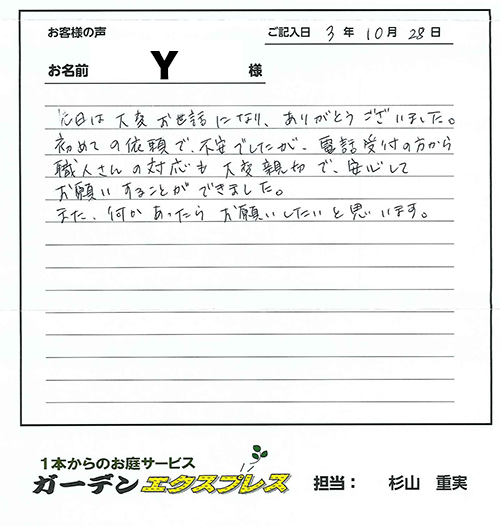 お客様の声
ご記入日 3年10月28日
お名前 Y 様
先日は大変お世話になり、ありがとうございました。
初めての依頼で、不安でしたが、電話受付の方から
職人さんの対応も大変親切で、安心して
お願いすることができました。
また、何かあったらお願いしたいと思います。
1本からのお庭サービス
ガーデンエクスプレス 担当： 杉山 重実